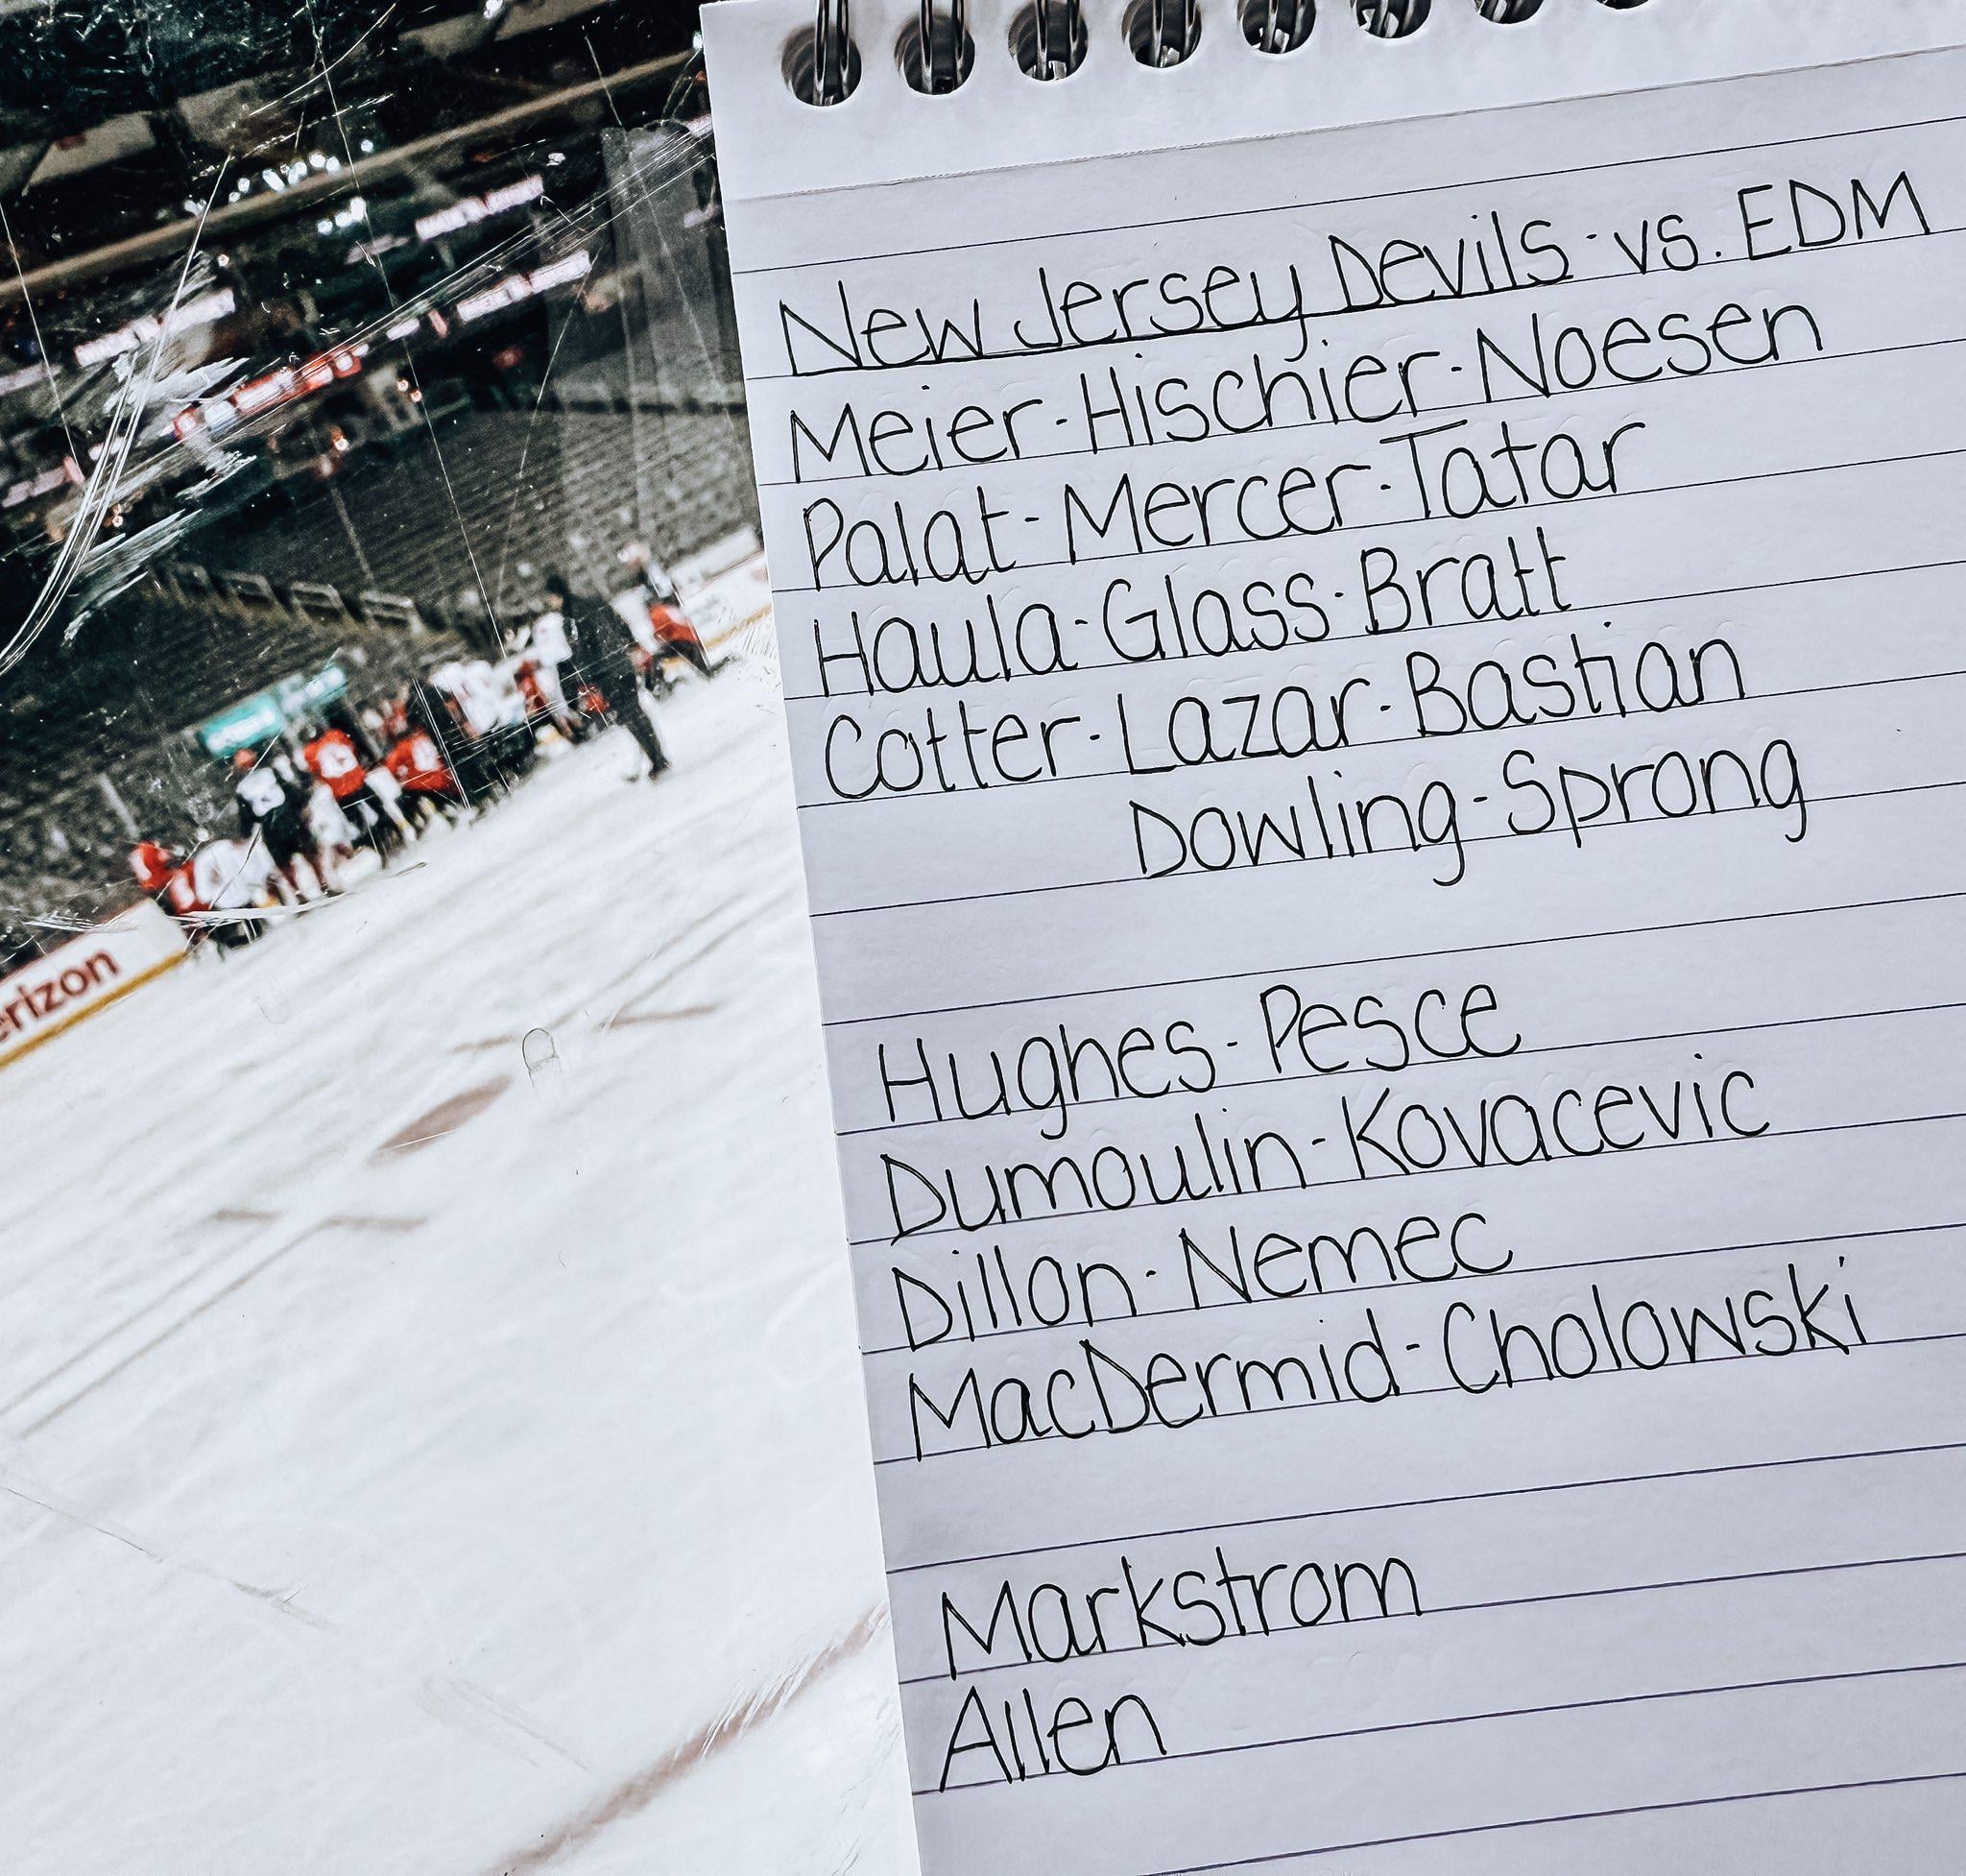 New Jersey Devils - vs. EDM
Meier-Hischier-Noesen
Palat-Mercer-Tatar
Haula-Glass-Bratt
Cotter-Lazar-Bastian
Dowling-Sprong
Hughes-Pesce
Dumoulin-Kovacevic
Dillon-Nemec
MacDermid-Cholowski
Markstrom
Allen
erizon